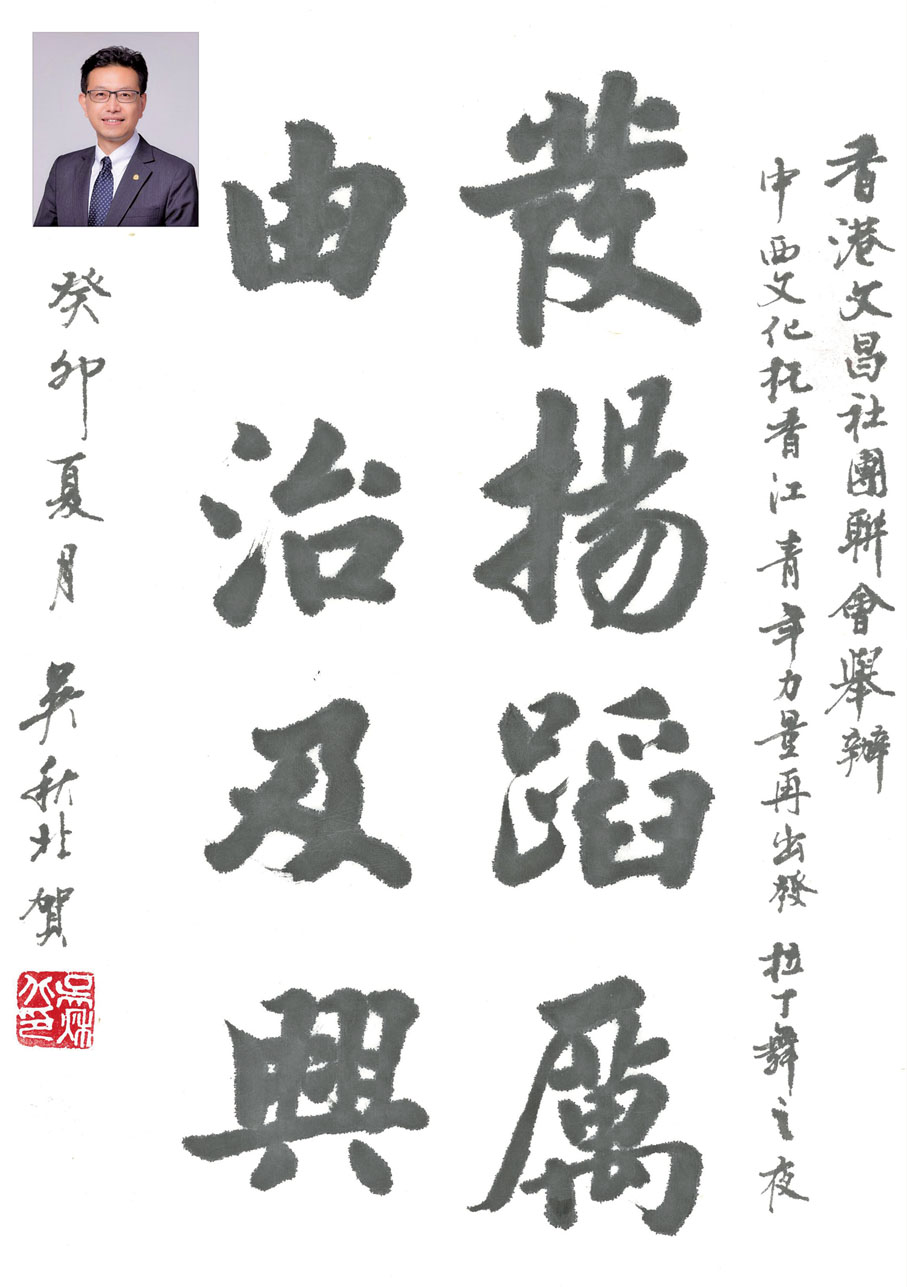 香港文昌社團聯會舉辦
中西文化托香江 青年力量再出發 拉丁舞之夜
發揚蹈厲
由治及興
癸卯夏月 吳秋北賀
吳秋北印